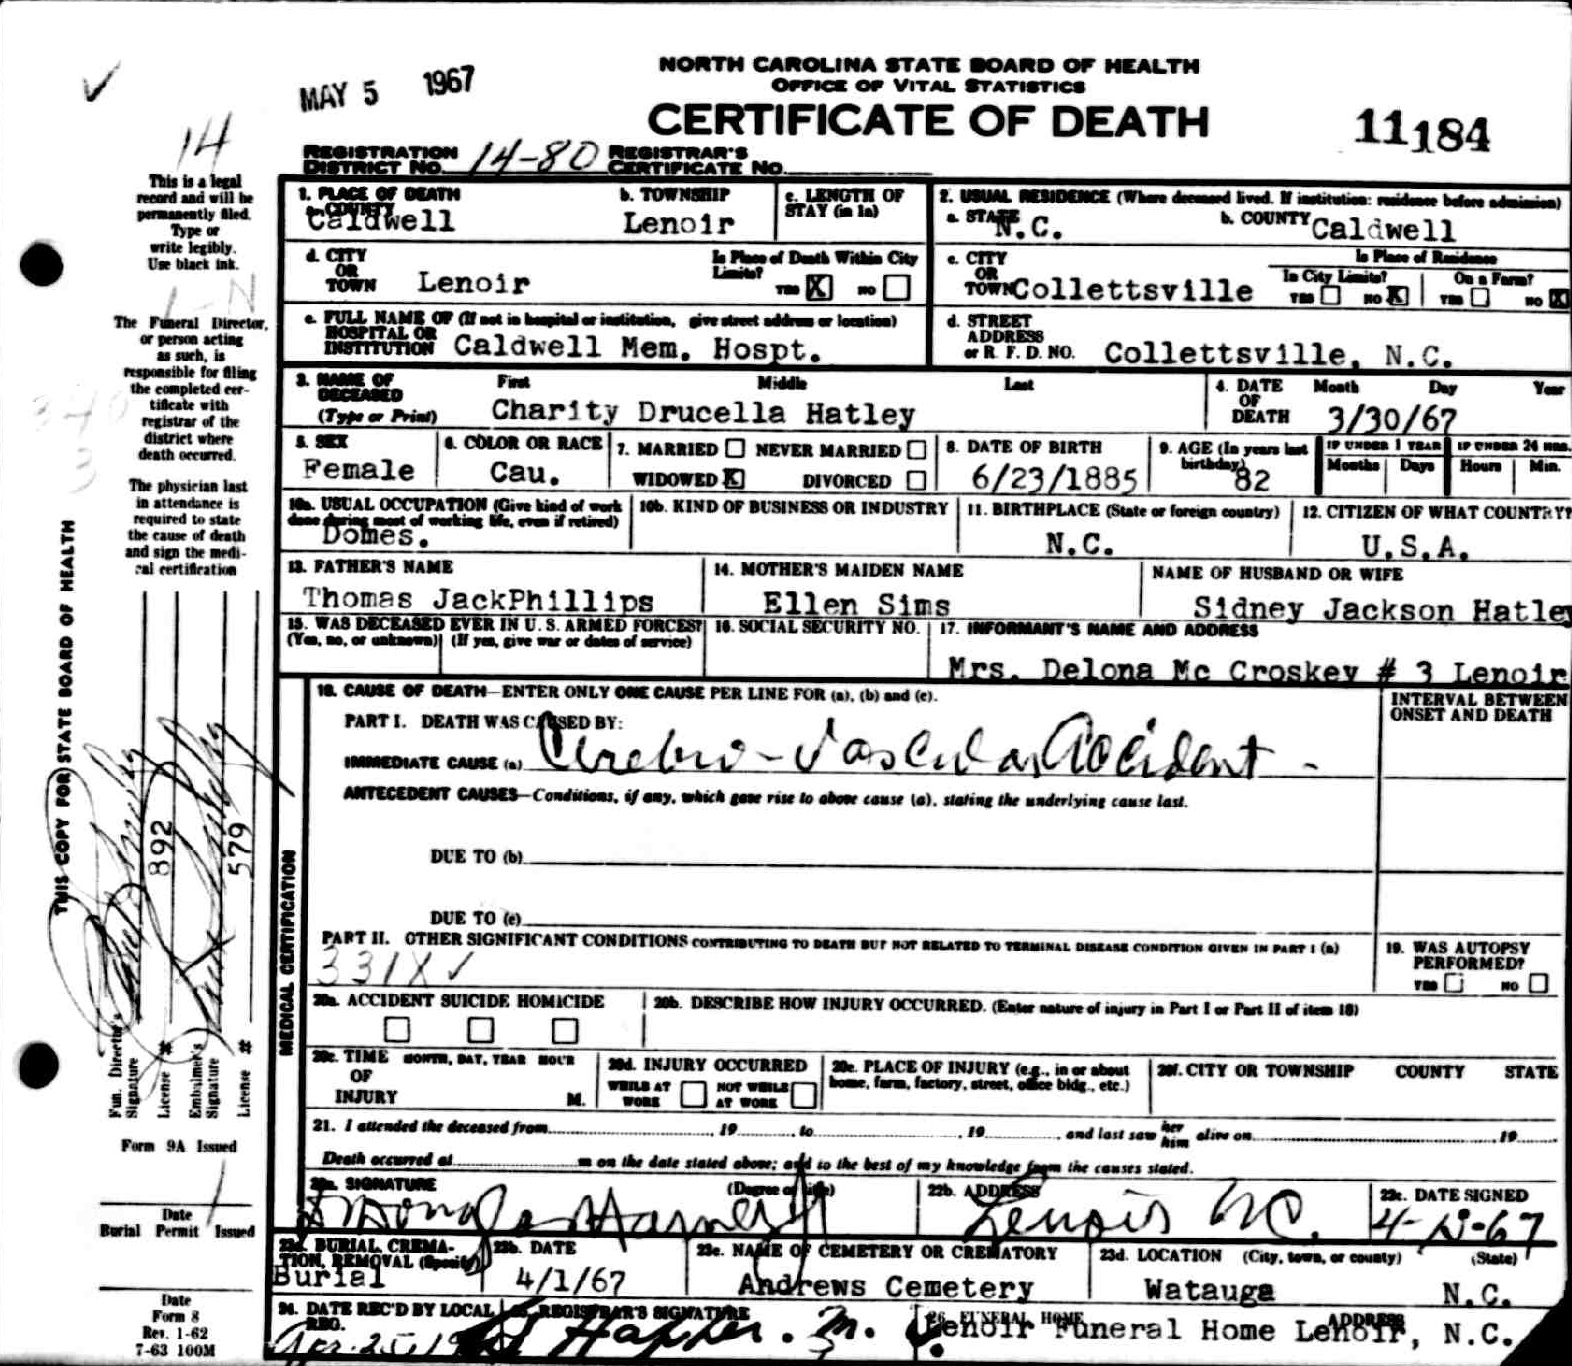 NORTH CAROLINA STATE BOARD OF HEALTH
OFFICE OF VITAL STATISTICS
CERTIFICATE OF DEATH
MAY 5 1967
11184
14
REGISTRATION DISTRICT NO. 14-80 REGISTRAR'S CERTIFICATE NO.
This is a legal
record and will be
permanently filed.
Type or
write legibly.
Use black ink.
The Funeral Director,
or person acting
as such, is
responsible for filing
the completed cer-
tificate with
registrar of the
district where
death occurred.
The physician last
in attendance is
required to state
the cause of death
and sign the medi-
cal certification
THIS COPY FOR STATE BOARD OF HEALTH
Fun. Director's Signature
License # 892
Embalmer's Signature
License # 579
Form 9A Issued
Date
Burial Permit Issued
Date
Form 8
Rev. 1-62
7-63 100M
1. PLACE OF DEATH
a. COUNTY Caldwell
b. TOWNSHIP Lenoir
c. LENGTH OF STAY (in 1a)
2. USUAL RESIDENCE (Where deceased lived. If institution: residence before admission)
a. STATE N.C.
b. COUNTY Caldwell
d. CITY OR TOWN Lenoir
Is Place of Death Within City Limits? YES X NO
c. CITY OR TOWN Collettsville
Is Place of Residence
In City Limits? YES NO X
On a Farm? YES NO X
e. FULL NAME OF HOSPITAL OR INSTITUTION (If not in hospital or institution, give street address or location)
Caldwell Mem. Hospt.
d. STREET ADDRESS or R. F. D. NO. Collettsville, N.C.
3. NAME OF DECEASED (Type or Print) First Middle Last
Charity Drucella Hatley
4. DATE OF DEATH Month Day Year
3/30/67
5. SEX Female
6. COLOR OR RACE Cau.
7. MARRIED NEVER MARRIED
WIDOWED X DIVORCED
8. DATE OF BIRTH 6/23/1885
9. AGE (In years last birthday) 82
IF UNDER 1 YEAR Months Days
IF UNDER 24 HRS. Hours Min.
10a. USUAL OCCUPATION (Give kind of work done during most of working life, even if retired)
Domes.
10b. KIND OF BUSINESS OR INDUSTRY
11. BIRTHPLACE (State or foreign country)
N.C.
12. CITIZEN OF WHAT COUNTRY?
U.S.A.
13. FATHER'S NAME
Thomas JackPhillips
14. MOTHER'S MAIDEN NAME
Ellen Sims
NAME OF HUSBAND OR WIFE
Sidney Jackson Hatley
15. WAS DECEASED EVER IN U. S. ARMED FORCES?
(Yes, no, or unknown) (If yes, give war or dates of service)
16. SOCIAL SECURITY NO.
17. INFORMANT'S NAME AND ADDRESS
Mrs. Delona Mc Croskey # 3 Lenoir
MEDICAL CERTIFICATION
18. CAUSE OF DEATH—ENTER ONLY ONE CAUSE PER LINE FOR (a), (b) and (c).
INTERVAL BETWEEN ONSET AND DEATH
PART I. DEATH WAS CAUSED BY:
IMMEDIATE CAUSE (a) Cerebro-Vascular Accident -
ANTECEDENT CAUSES—Conditions, if any, which gave rise to above cause (a), stating the underlying cause last.
DUE TO (b)
DUE TO (c)
PART II. OTHER SIGNIFICANT CONDITIONS CONTRIBUTING TO DEATH BUT NOT RELATED TO TERMINAL DISEASE CONDITION GIVEN IN PART I (a)
331X
19. WAS AUTOPSY PERFORMED?
YES NO
20a. ACCIDENT SUICIDE HOMICIDE
20b. DESCRIBE HOW INJURY OCCURRED. (Enter nature of injury in Part I or Part II of item 18)
20c. TIME OF INJURY MONTH, DAY, YEAR HOUR M.
20d. INJURY OCCURRED
WHILE AT WORK NOT WHILE AT WORK
20e. PLACE OF INJURY (e.g., in or about home, farm, factory, street, office bldg., etc.)
20f. CITY OR TOWNSHIP COUNTY STATE
21. I attended the deceased from , 19 , to , 19 , and last saw her him alive on , 19
Death occurred at m on the date stated above; and to the best of my knowledge from the causes stated.
22a. SIGNATURE (Degree or title)
22b. ADDRESS Lenoir NC.
22c. DATE SIGNED
23a. BURIAL, CREMATION, REMOVAL (Specify)
Burial
23b. DATE
4/1/67
23c. NAME OF CEMETERY OR CREMATORY
Andrews Cemetery
23d. LOCATION (City, town, or county) (State)
Watauga N.C.
24. DATE REC'D BY LOCAL REG.
25. REGISTRAR'S SIGNATURE
26. FUNERAL HOME ADDRESS
Lenoir Funeral Home Lenoir, N.C.